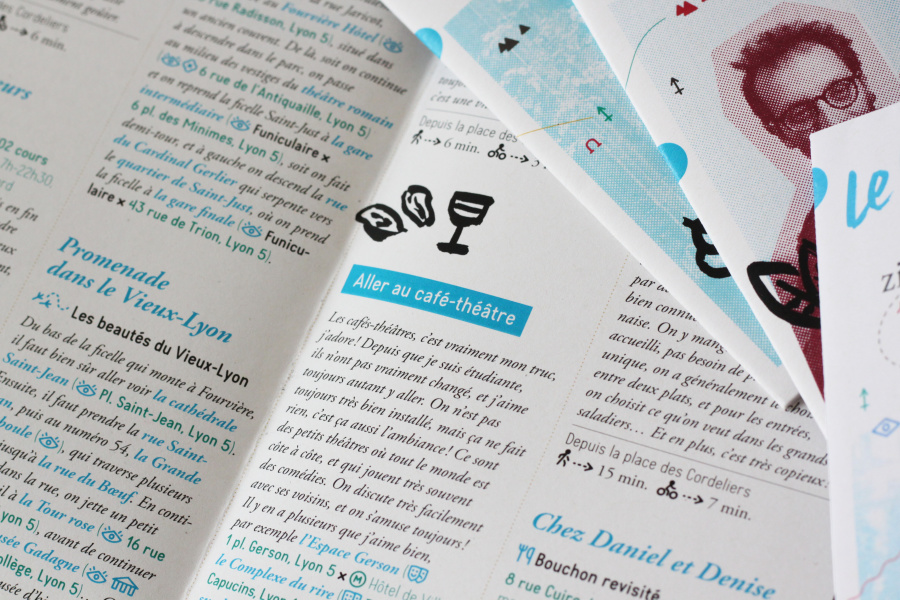 Cordeliers
6 min.
eurs
02 cours
7h-22h30.
rue Radisson, Lyon 5), situé dans
au Fourvière Hôtel
un ancien couvent. De là, soit on continue
à descendre dans le parc, on passe
au milieu des vestiges du théâtre romain
6 rue de l'Antiquaille, Lyon 5)
et on reprend la ficelle Saint-Just à la gare
intermédiaire ( Funiculaire ×
6 pl. des Minimes, Lyon 5), soit on fait
demi-tour, et à gauche on descend la rue
du Cardinal Gerlier qui serpente vers
le quartier de Saint-Just, où on prend
la ficelle à la gare finale ( Funicu-
laire × 43 rue de Trion, Lyon 5).
Promenade
dans le Vieux-Lyon
Les beautés du Vieux-Lyon
Du bas de la ficelle qui monte à Fourvière,
il faut bien sûr aller voir la cathédrale
Saint-Jean ( Pl. Saint-Jean, Lyon 5).
Ensuite, il faut prendre la rue Saint-
Jean, puis au numéro 54, la Grande
Boule ( ), qui traverse plusieurs
jusqu'à la rue du Bœuf. En conti-
dans la rue, on jette un petit
œil à la Tour rose ( 16 rue
Lyon 5), avant de continuer
musée Gadagne (
collège, Lyon 5).
Depuis la place des
6 min.
Aller au café-théâtre
Les cafés-théâtres, c'est vraiment mon truc,
j'adore ! Depuis que je suis étudiante,
ils n'ont pas vraiment changé, et j'aime
toujours autant y aller. On n'est pas
toujours très bien installé, mais ça ne fait
rien, c'est ça aussi l'ambiance ! Ce sont
des petits théâtres où tout le monde est
côte à côte, et qui jouent très souvent
des comédies. On discute très facilement
avec ses voisins, et on s'amuse toujours !
Il y en a plusieurs que j'aime bien,
par exemple l'Espace Gerson (
1 pl. Gerson, Lyon 5 × M Hôtel de
le Complexe du rire (
Capucins, Lyon
bien connu
naise. On y mang
accueilli, pas besoin de
unique, on a généralement
entre deux plats, et pour les entrées,
on choisit ce qu'on veut dans les grands
saladiers... Et en plus, c'est très copieux.
Depuis la place des Cordeliers
15 min. 7 min.
Chez Daniel et Denise
Bouchon revisité
8 rue
le